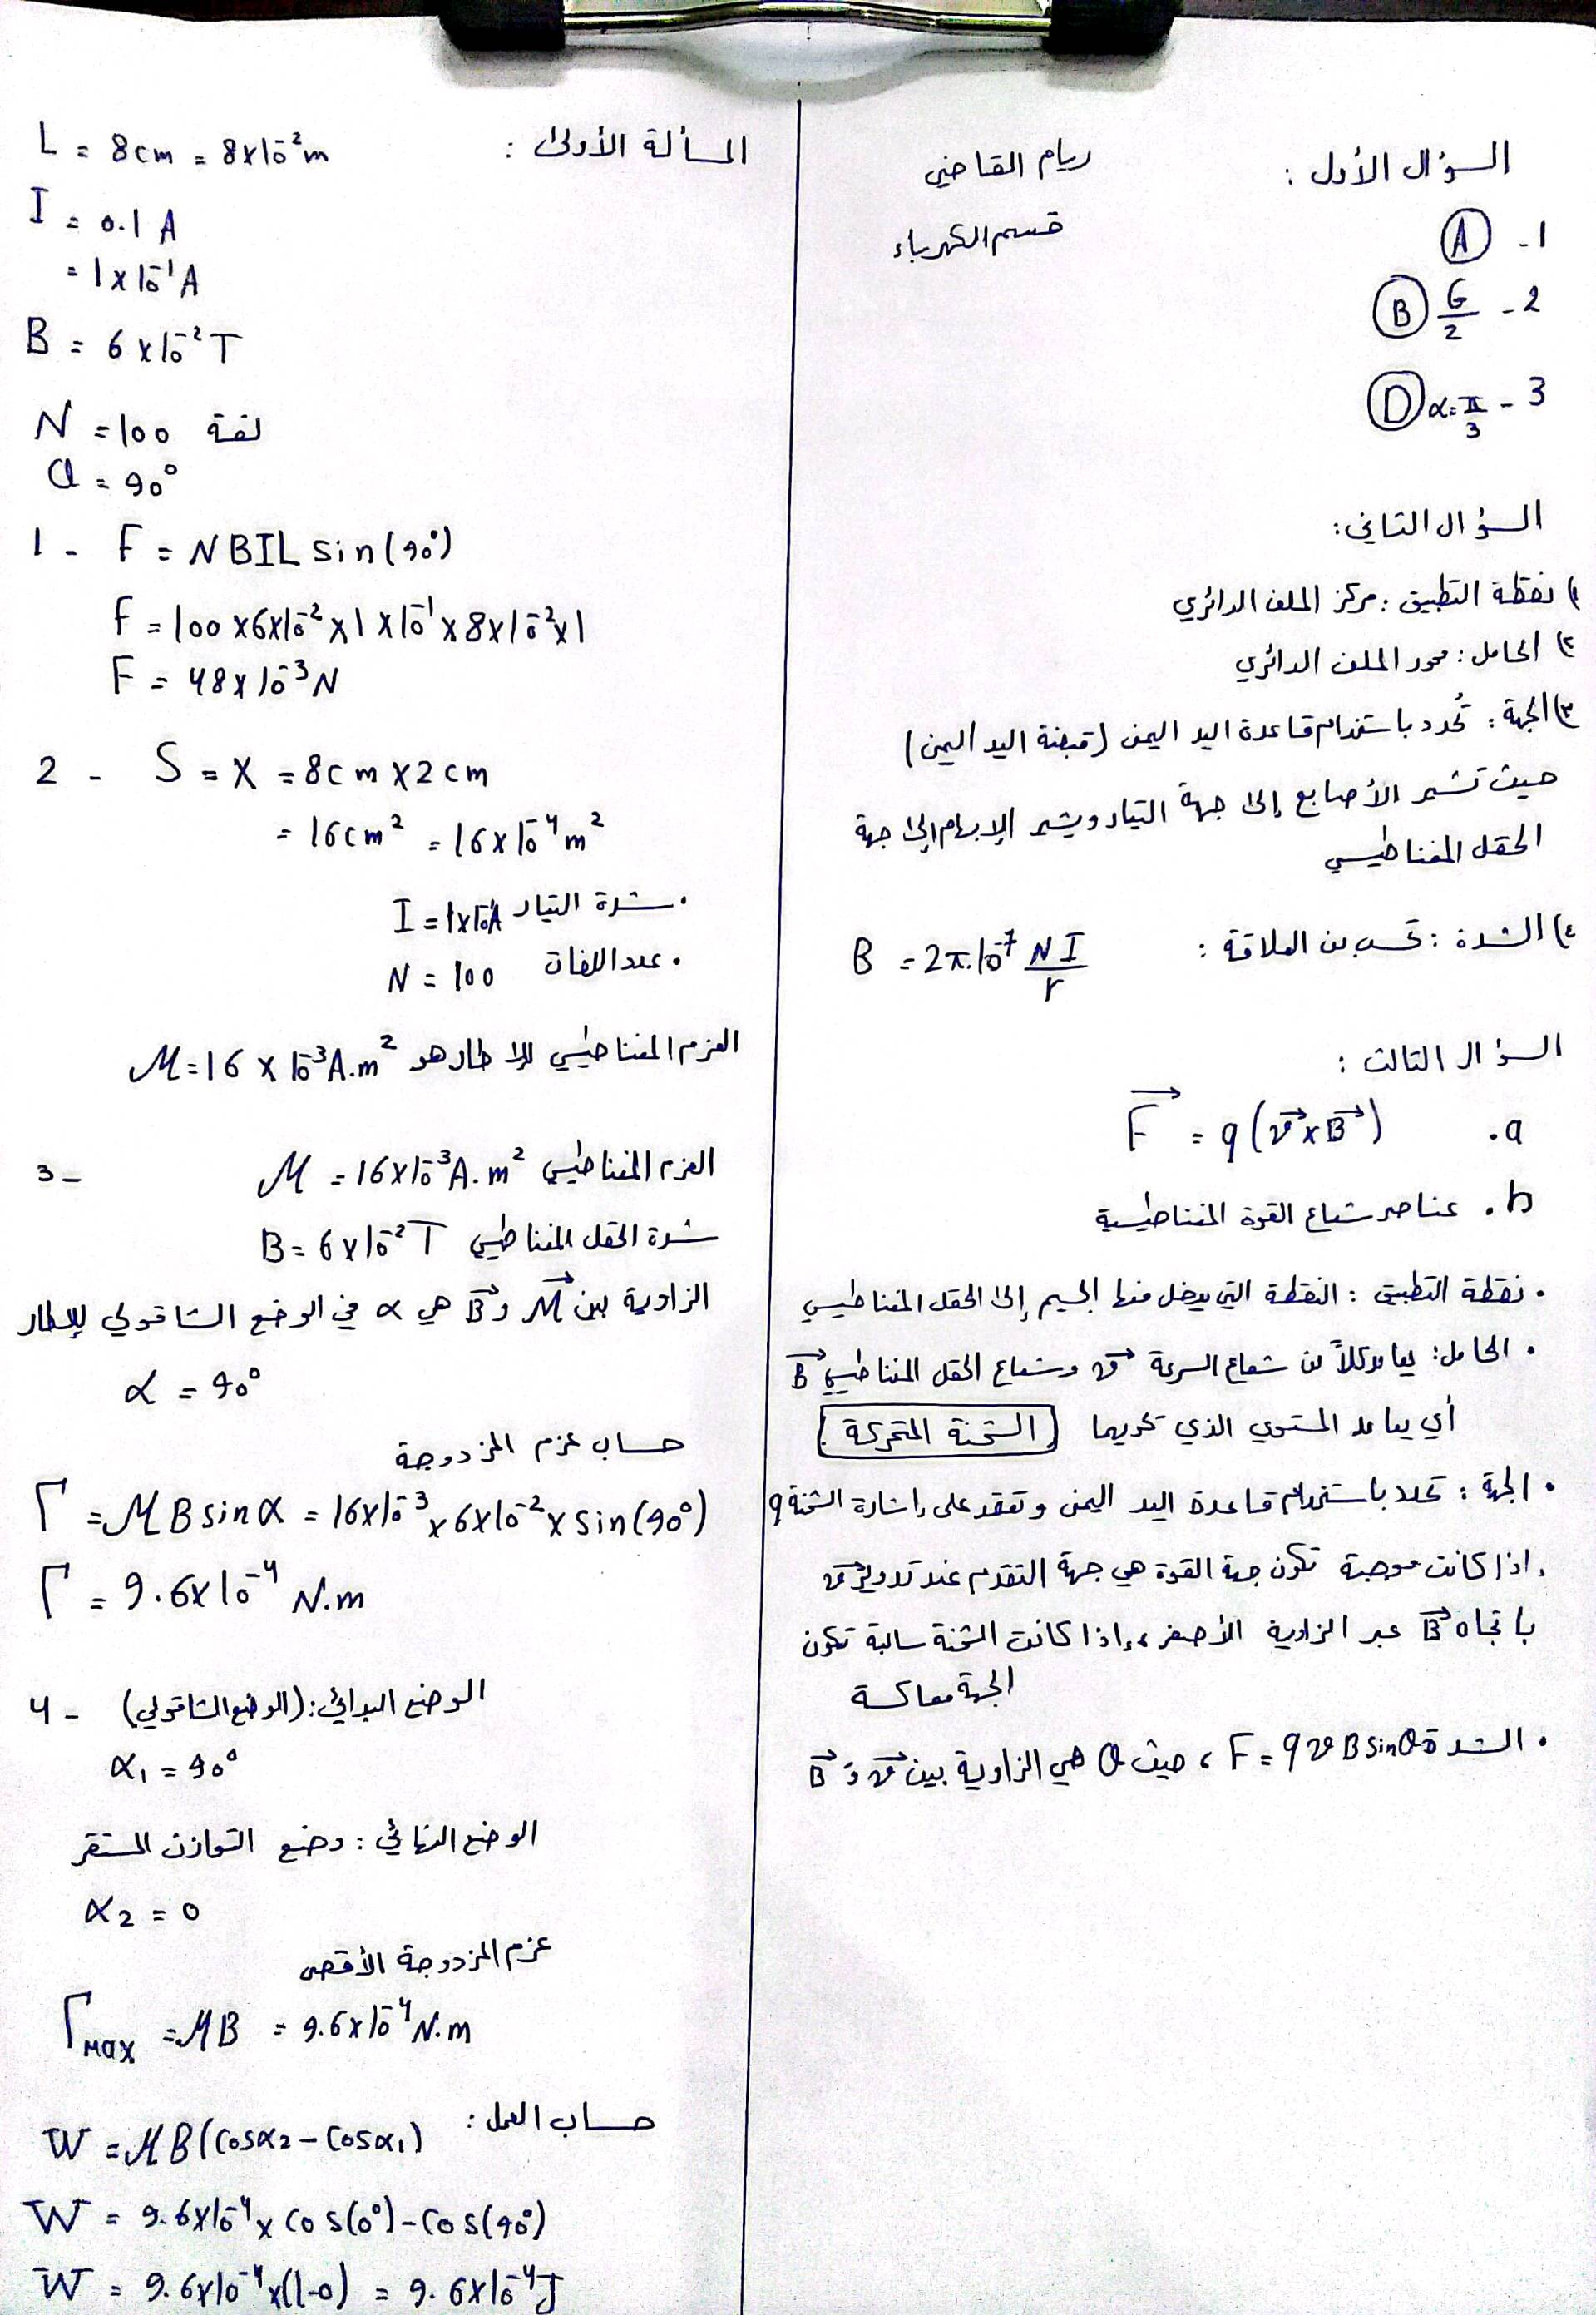 السؤال الأول :
ريام القاضي
قسم الكهرباء
1 - A
2 - G/2 B
3 - α = π/3 D
السؤال الثاني:
١) نقطة التطبيق : مركز الملف الدائري
٢) الحامل : محور الملف الدائري
٣) الجهة : تُحدد باستخدام قاعدة اليد اليمنى (قبضة اليد اليمنى)
حيث تشير الأصابع إلى جهة التيار ويشير الإبهام إلى جهة
الحقل المغناطيسي
٤) الشدة : تحسب من العلاقة : B = 2π.10⁻⁷ NI/r
السؤال الثالث :
a. F⃗ = q(v⃗ x B⃗)
b. عناصر شعاع القوة المغناطيسية
• نقطة التطبيق : النقطة التي يدخل منها الجسيم إلى الحقل المغناطيسي
• الحامل : يعامد كلاً من شعاع السرعة v⃗ وشعاع الحقل المغناطيسي B⃗
أي يعامد المستوي الذي تحويهما (الشحنة المتحركة)
• الجهة : تحدد باستخدام قاعدة اليد اليمنى وتعتمد على إشارة الشحنة q
إذا كانت موجبة تكون جهة القوة هي جهة التقدم عند تدوير v⃗
باتجاه B⃗ عبر الزاوية الأصغر، إذا كانت الشحنة سالبة تكون
الجهة معاكسة
• الشدة F = qvB sinθ ، حيث θ هي الزاوية بين v⃗ و B⃗
المسألة الأولى :
L = 8cm = 8x10⁻²m
I = 0.1 A
= 1x10⁻¹A
B = 6x10⁻²T
N = 100 لفة
θ = 90°
1 - F = NBIL sin(90°)
F = 100 x6x10⁻² x1x10⁻¹x8x10⁻²x1
F = 48x10⁻³N
2 - S = X = 8cm x2cm
= 16cm² = 16x10⁻⁴m²
• شدة التيار I = 1x10⁻¹A
• عدد اللفات N = 100
العزم المغناطيسي للإطار هو M = 16 x 10⁻³A.m²
3 - العزم المغناطيسي M = 16x10⁻³A.m²
شدة الحقل المغناطيسي B = 6x10⁻²T
الزاوية بين M⃗ و B⃗ هي α في الوضع الشاقولي للإطار
α = 90°
حساب عزم المزدوجة
Γ = MB sinα = 16x10⁻³x6x10⁻²x sin(90°)
Γ = 9.6x10⁻⁴ N.m
4 - الوضع البدائي : (الوضع الشاقولي)
α₁ = 90°
الوضع النهائي : وضع التوازن المستقر
α₂ = 0
عزم المزدوجة الأقصى
Γmax = MB = 9.6x10⁻⁴N.m
حساب العمل :
W = MB(cosα₂ - cosα₁)
W = 9.6x10⁻⁴x cos(0°) - cos(90°)
W = 9.6x10⁻⁴x(1-0) = 9.6x10⁻⁴J